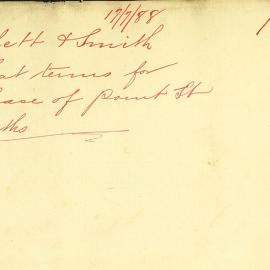 17/7/88
lett & Smith
at terms for
ease of Point St
ths